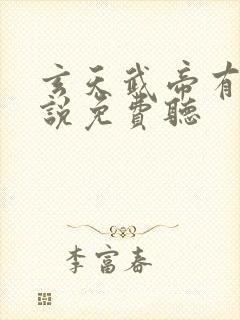 玄天武帝有
說免費聽
李富春